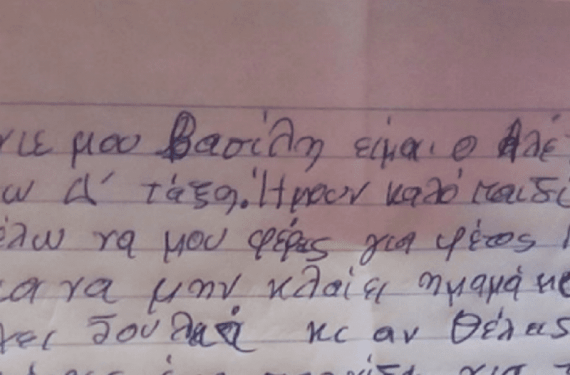 μου Βασίλη είμαι ο Αλέ
Δ' τάξη. Ήμουν καλό παιδί
έλω να μου φέρεις για φέτος
να μην κλαίει ημαμά
δουλειά κι αν θέλεις